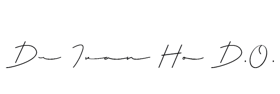 Dr Ivan Ho D.O.